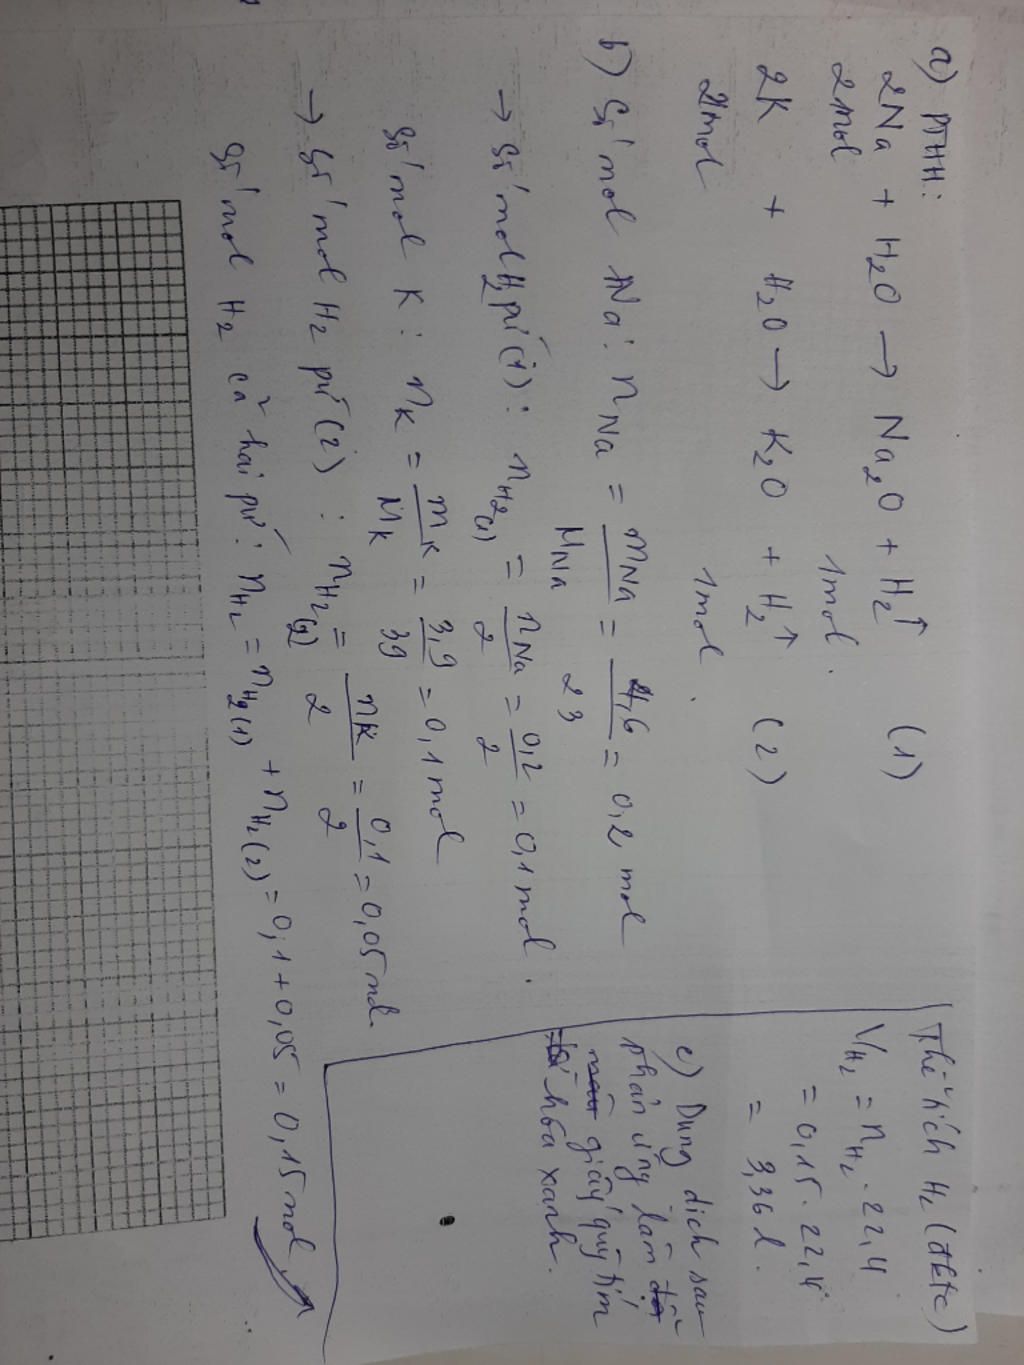 a) PTHH:
2Na + H₂O → Na₂O + H₂↑ (1)
2mol 1mol.
2K + H₂O → K₂O + H₂↑ (2)
2mol 1mol.
b) Số mol Na: nNa = mNa/MNa = 4,6/23 = 0,2 mol
→ Số mol H₂ pứ (1): nH₂(1) = nNa/2 = 0,2/2 = 0,1 mol.
Số mol K: nK = mK/MK = 3,9/39 = 0,1 mol
→ Số mol H₂ pứ (2): nH₂(2) = nK/2 = 0,1/2 = 0,05 mol.
Số mol H₂ cả hai pứ: nH₂ = nH₂(1) + nH₂(2) = 0,1 + 0,05 = 0,15 mol
Thể tích H₂ (đktc)
VH₂ = nH₂ . 22,4
= 0,15 . 22,4
= 3,36 l.
c) Dung dịch sau
phản ứng làm
giấy quỳ tím
hóa xanh.